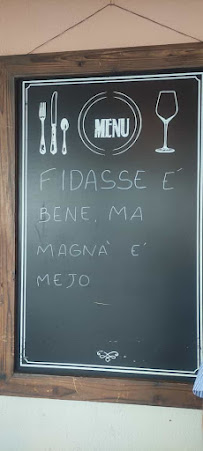 MENU
FIDASSE É
BENE, MA
MAGNÀ É
MEJO